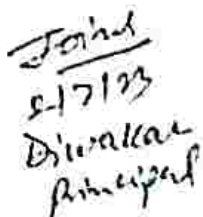 Joined
5/7/23
Diwakar
Principal